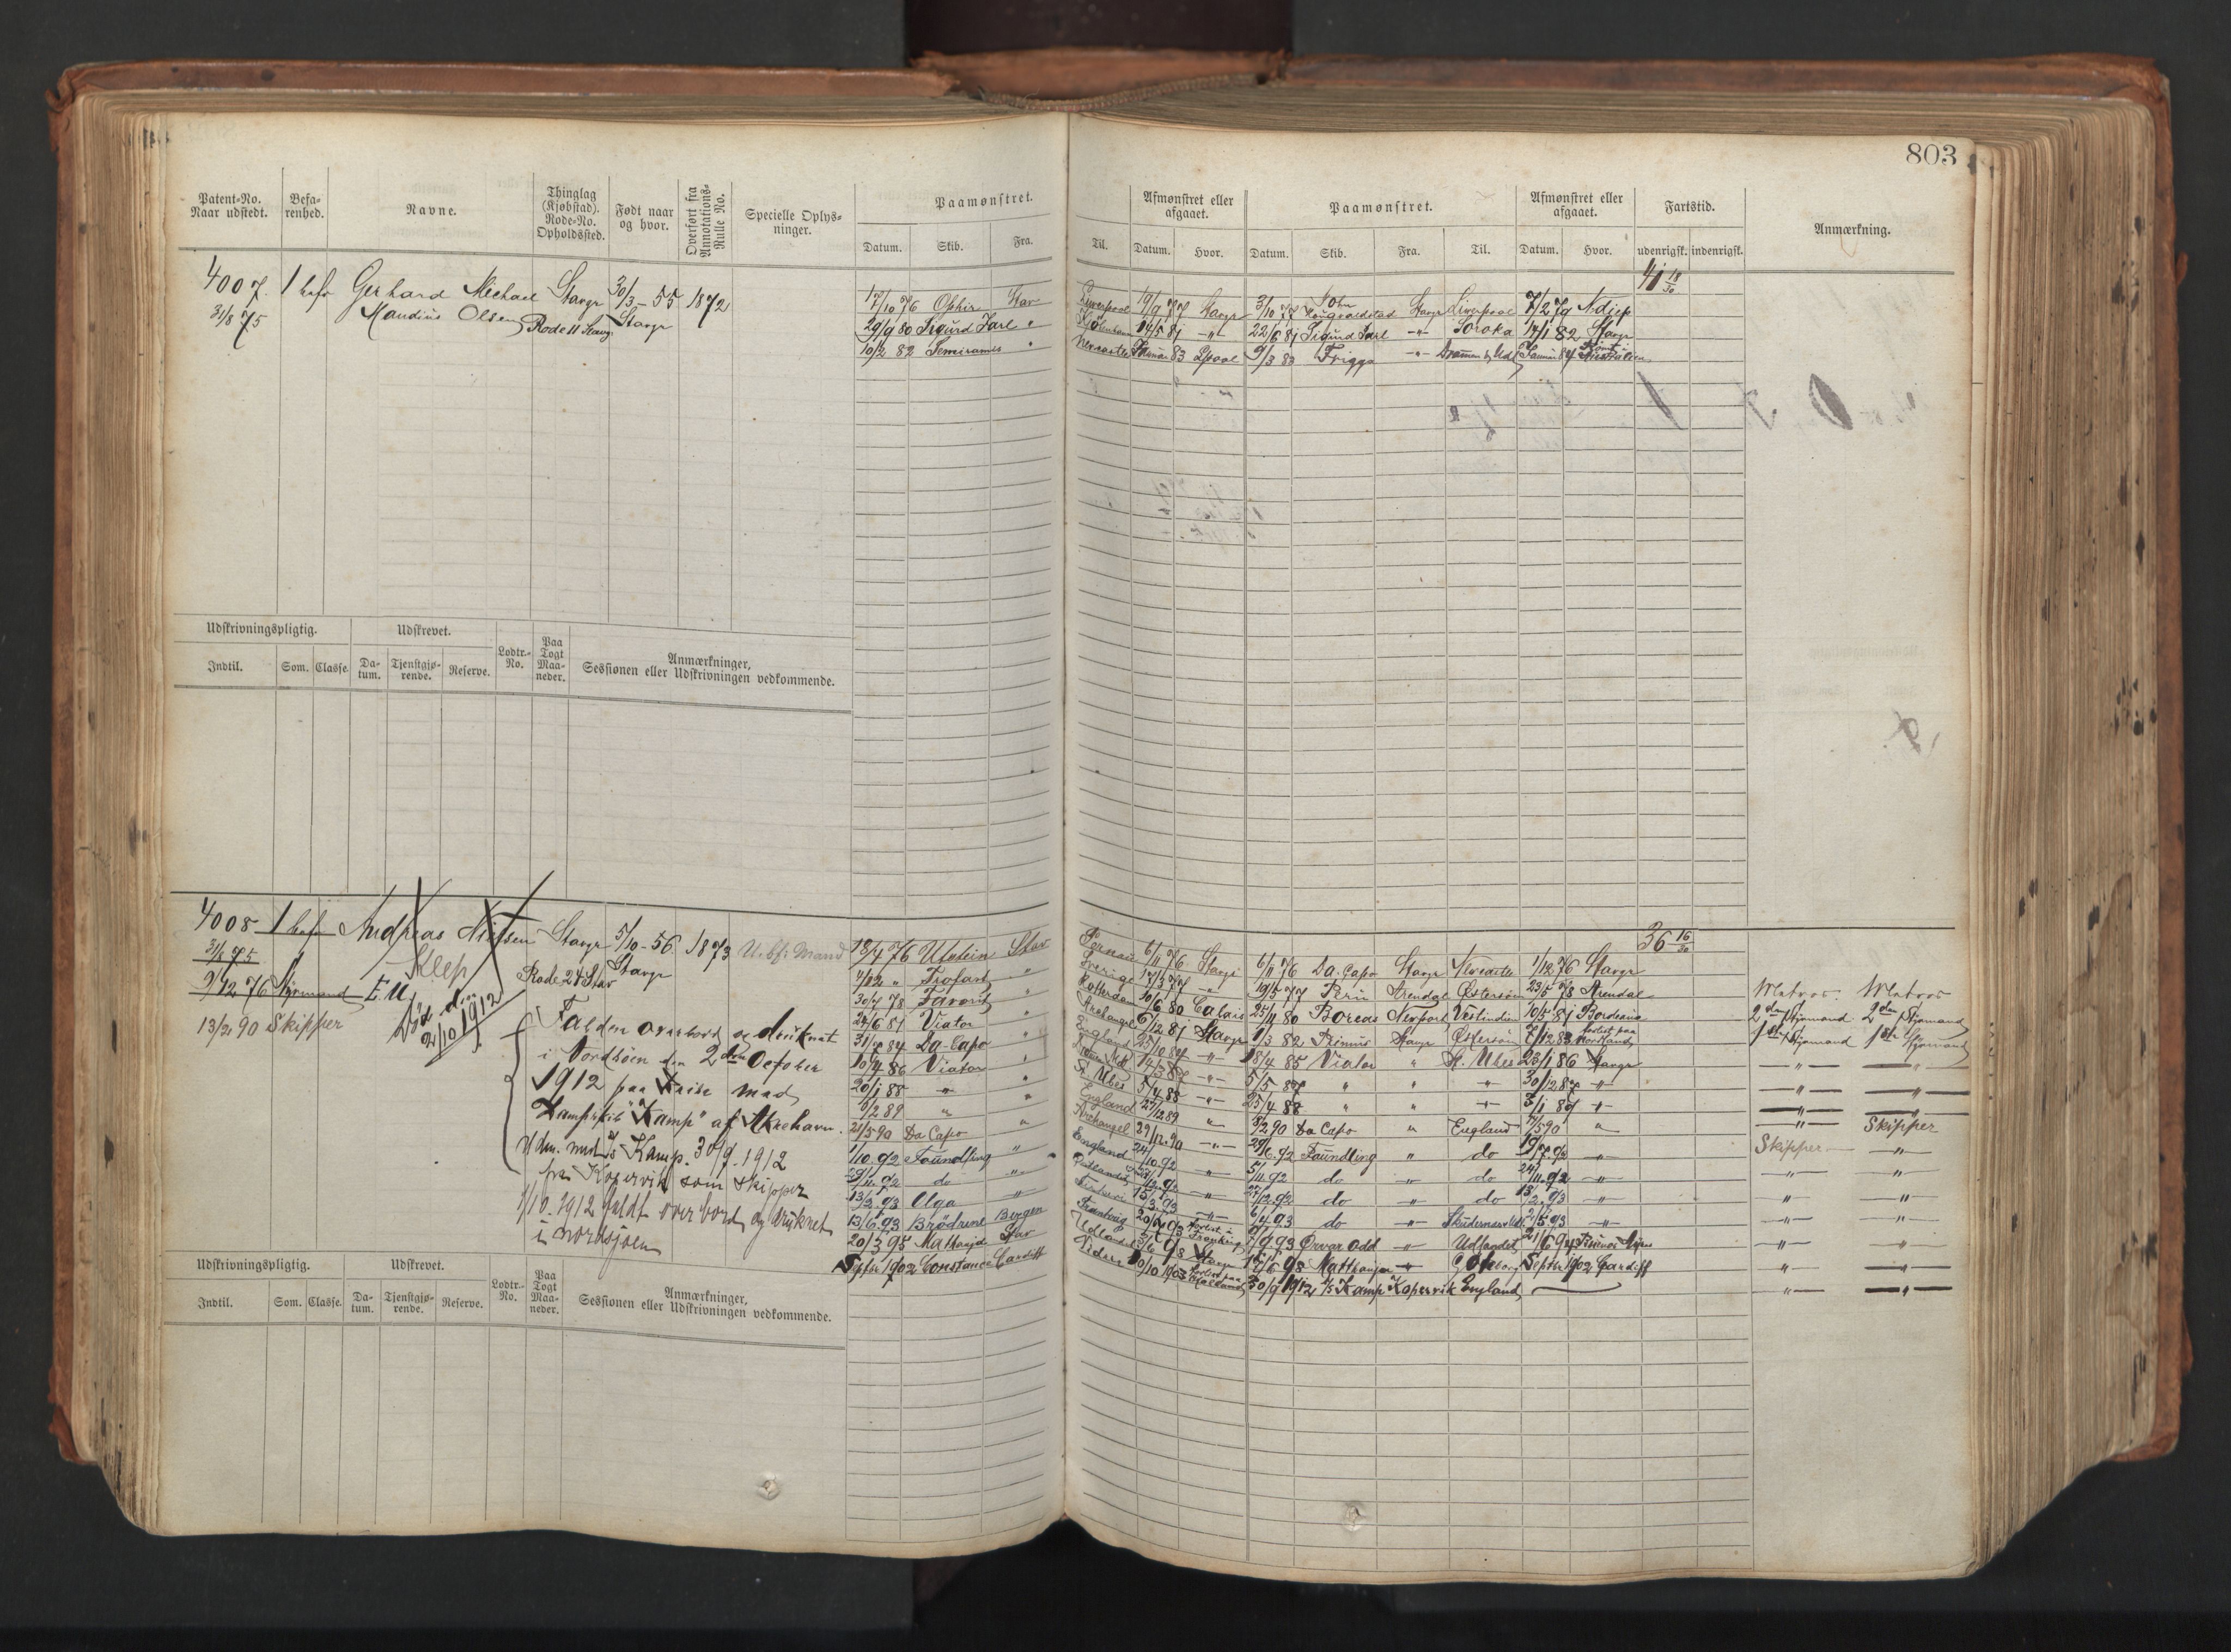 803
Patent-No. Naar udstedt.
Befarenhed.
Navne.
Thinglag (Kjøbstad). Rode-No. Opholdssted.
Født naar og hvor.
Overført fra Annotations-Rulle No.
Specielle Oplysninger.
Paamønstret.
Datum. Skib. Fra. Til.
Afmønstret eller afgaaet.
Datum. Hvor.
Paamønstret.
Datum. Skib. Fra. Til.
Afmønstret eller afgaaet.
Datum. Hvor.
Fartstid.
udenrigsk. indenrigsk.
Anmærkning.
4007 1 bef Gerhard Michael Stavgr 30/3-55 1872
31/8 75 Maudius Olsen Rode 11 Stavgr Stavgr
41 18/30
17/10 76 Ophir Stav Liverpool 19/9 77 Stavgr 3/10 77 John Haugvaldstad Stavgr Liverpool 7/2 79 N. diep
29/9 80 Sigurd Jarl " Kjöbenhavn 14/5 81 -"- 22/6 81 Sigurd Jarl -"- Soroka 14/1 82 Stavgr
10/2 82 Semiramis " Newcastle Januar 83 Lpool 9/3 83 Frigga -"- Drammen og Udl Januar 84 Rømt i Australien
Udskrivningspligtig. Udskrevet. Lodtr.-No. Paa Togt Maaneder. Anmærkninger, Sessionen eller Udskrivningen vedkommende.
Indtil. Som. Classe. Datum. Tjenstgjørende. Reserve.
4008 1 bef Andreas Nielsen Stavgr 5/10-56 1873 U. bf. Mand
31/8 75 Kleep Rode 24 Stav Stavgr
9/12 76 Styrmand E.U.
13/2 90 Skipper
Död den 2/10 1912
Falden overbord og druknet
i Nordsöen den 2den October
1912 paa Reise med
Dampskib "Kamp" af Akrehavn.
Udm. med D/S Kamp. 30/9. 1912
fra Kopervik som skipper
2/10. 1912 faldt over bord og druknet
i nordsjøen
36 16/30
18/4 76 Utstein Stav Pernau 6/11 76 Stavgr 6/11 76 Da Capo Stavgr Newcastle 1/12 76 Stavgr
4/12 " Trofast " Sverige 17/3 77 " 19/5 77 Perin Arendal Østersöen 23/5 78 Arendal Matros Matros
30/7 78 Favorit " Rotterdam 10/6 80 Calais 25/11 80 Boreas Newport Vestindien 10/5 81 Bordeaux 2den Styrmand 2den Styrmand
24/6 81 Viator " Archangel 6/12 81 Stavgr 9/3 82 Primus Stavgr Østersöen 7/12 83 forlist paa 1ste Styrmand 1ste Styrmand
31/7 84 Da-Capo " England 25/10 84 -"- 18/4 85 Viator " St. Ubes 23/1 86 Stavgr -"- -"-
10/4 86 Viator " 14/3 87 -"- 5/5 87 " " " 30/12 87 -"- -"- -"-
20/1 88 -"- " St. Ubes 5/4 88 -"- 25/4 88 " " -"- 3/1 89 -"- -"- -"-
9/2 89 " " England 27/12 89 " 8/2 90 Da Capo " England 7/5 90 " -"- Skipper
21/5 90 Da Capo " Archangel 29/12 90 -"- 29/6 92 Foundling " do 19/9 92 -"- Skipper -"-
1/10. 92 Foundling -"- England 24/10 92 " 5/11 92 do -"- do 24/11. 92 -"- -"- -"-
29/11. 92 do -"- -"- 27/12. 92 do -"- do 13/2. 93 -"- " "
13/2. 93 Olga -"- -"- 6/4 93 do -"- 2/5 93 -"- -"- "
13/6. 93 Brödrene Bergen 9/9 93 Ørvar Odd -"- Udlandet 21/6 94 Buenos Ayres " "
20/3 95 Matthanja Stav Udlandet 3/6 98 Stavgr 17/6 98 Matthanja -"- Göteborg Septbr 1902 Cardiff " "
Septbr 1902 Constance Cardiff 10/10 1903 Forlist paa 30/9 1912 D/S Kamp Kopervik England " "
Udskrivningspligtig. Udskrevet. Lodtr.-No. Paa Togt Maaneder. Anmærkninger, Sessionen eller Udskrivningen vedkommende.
Indtil. Som. Classe. Datum. Tjenstgjørende. Reserve.